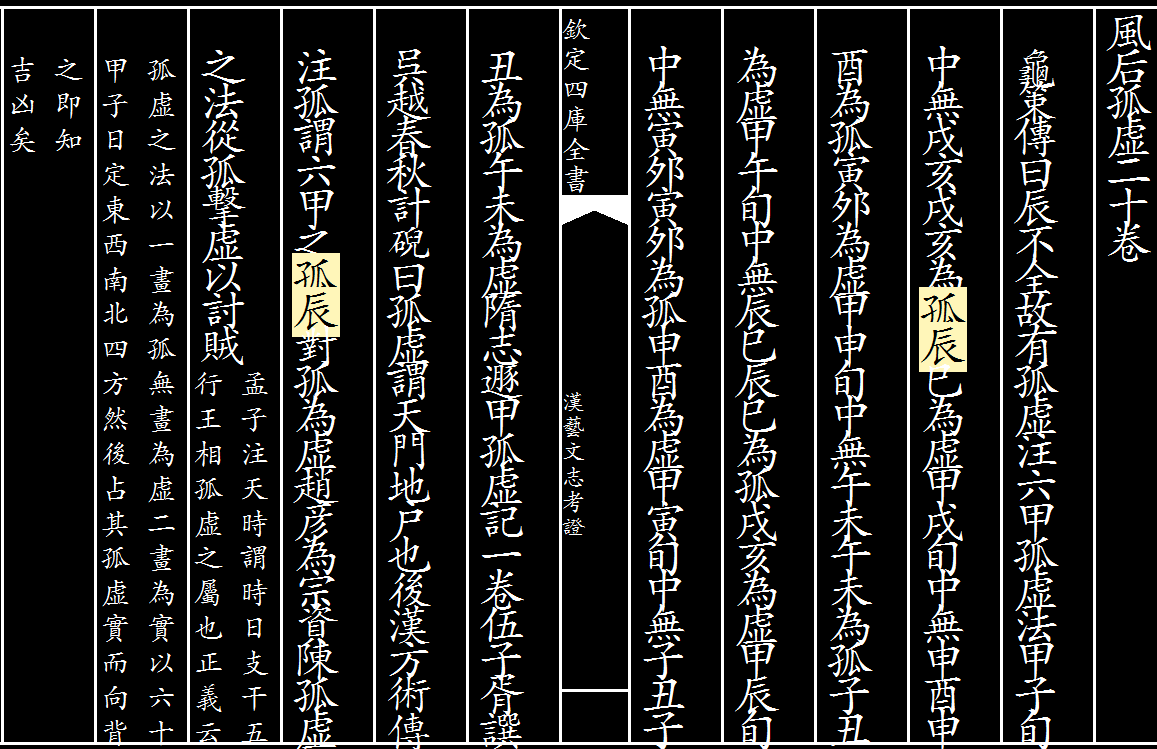 風后孤虛二十卷
龜策傳曰辰不全故有孤虛注六甲孤虛法甲子旬
中無戌亥戌亥為孤辰巳為虛甲戌旬中無申酉申
酉為孤寅夘為虛甲申旬中無午未午未為孤子丑
為虛甲午旬中無辰巳辰巳為孤戌亥為虛甲辰旬
中無寅夘寅夘為孤申酉為虛甲寅旬中無子丑子
欽定四庫全書
漢藝文志考證
丑為孤午未為虛隋志遯甲孤虛記一卷伍子胥譔
吳越春秋計硯曰孤虛謂天門地戶也後漢方術傳
注孤謂六甲之孤辰對孤為虛趙彥為宗資陳孤虛
之法從孤擊虛以討賊
孟子注天時謂時日支干五
行王相孤虛之屬也正義云
孤虛之法以一畫為孤無畫為虛二畫為實以六十
甲子日定東西南北四方然後占其孤虛實而向背
之即知
吉凶矣